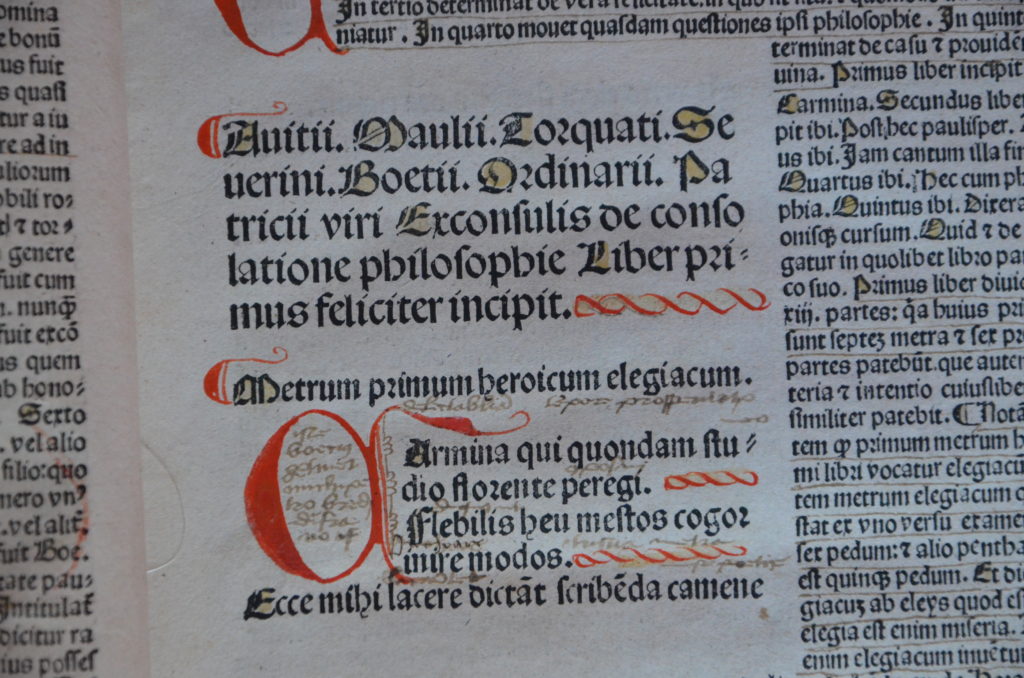 omina
e bonū
us fuit
s quasi
tur a iu
re ad in
uliorum
obili ro⸗
genere
fuit cum
. nunq̄
fuit excō
us quem
ab hono⸗
Sexto
. vel alio
filio: quo
mero vnꝰ
. vel alit̄.
fuit Boe.
tate pau⸗
Intitulat̄
dicitur ra
ius posses
In tertio determinat de vera felicitate.
niatur. In quarto mouet quasdam questiones ipsi philosophie. In quint
Auitii. Maulii. Torquati. Se
uerini. Boetii. Ordinarii. Pa
tricii viri Exconsulis de conso
latione philosophie Liber pri⸗
mus feliciter incipit.
Metrum primum heroicum elegiacum.
CArmina qui quondam stu⸗
dio florente peregi.
Flebilis heu mestos cogor
inire modos.
Ecce mihi lacere dictāt scribēda camene
terminat de casu ⁊ prouidē
uina. Primus liber incipit
Carmina. Secundus liber
pit ibi. Post hec paulisper.
us ibi. Jam cantum illa fin
Quartus ibi. Hec cum ph
phia. Quintus ibi. Dixera
onisqꝫ cursum. Quid ⁊ de
gatur in quolibet libro par
co suo. Primus liber diuid
xiij. partes: q̄a huius pri
sunt septeꝫ metra ⁊ sex pr
partes patebūt. que autem
teria ⁊ intentio cuiuslibe
similiter patebit. ¶ Notā
tem ꝙ primum metrum h
mi libri vocatur elegiacū
tem metrum elegiacum c
stat ex vno versu exame
sex pedum: ⁊ alio pentha
est quinqꝫ pedum. Et di
giacuꝫ ab eleys quod es
elegia est enim miseria.
enim elegiacum inuētum